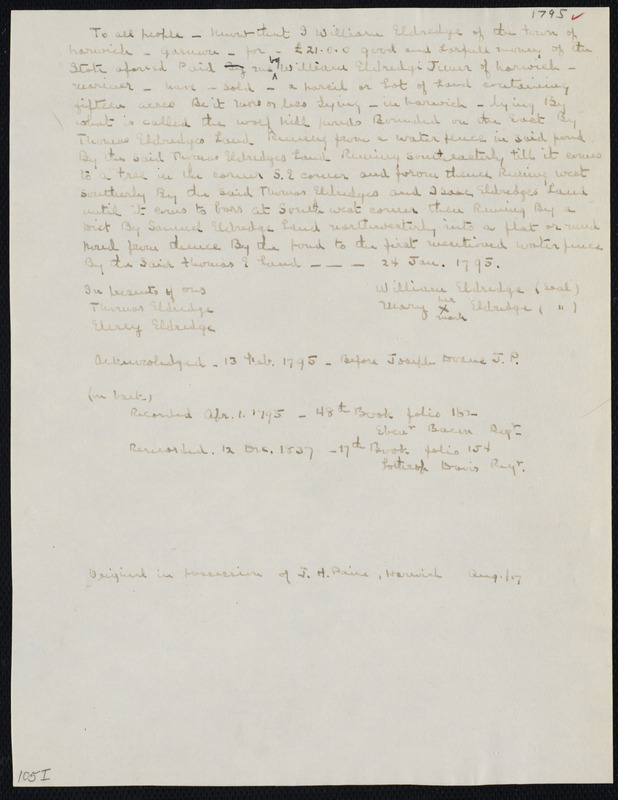 1795 ✓
To all people – Know that I William Eldredge of the town of
harwich – yeoman – for – £21.0.0 good and lawfull money of the
State aforesd Paid by me William Eldredge Juner of harwich –
mariner – have – sold – a parcil or Lot of Land containing
fifteen acres Be it more or less Lying – in harwich – lying By
what is called the woof hill ponds Bounded on the East By
Thomas Eldredges Land Runing from a water fence in said pond
By the said Thomas Eldredges Land Runing Southeasterly till it coms
to a tree in the corner S.E corner and from thence Runing west
Southerly By the said Thomas Eldredges and Isaac Eldredges Land
until it coms to bars at South west corner then Runing By a
By Samuel Eldredge Land northwesterly into a flat or mud
pond from thence By the pond to the first mentioned water fence
By the Said Thomas E Land – – – 24 Jan. 1795.
In presents of ous
William Eldredge (seal)
Thomas Eldredge
Mary her X mark Eldredge ( " )
Eldredge
Acknowledged – 13 Feb. 1795 – Before Joseph Doane J.P.
(on back)
Recorded Apr. 1. 1795 – 48th Book folio
Ebenr Bacon Regr
Rerecorded. 12 Dec. 1837 – 17th Book folio 154
Lothrop Davis Regr.
Original in possession of J. H. Paine, Harwich Aug./17
105I